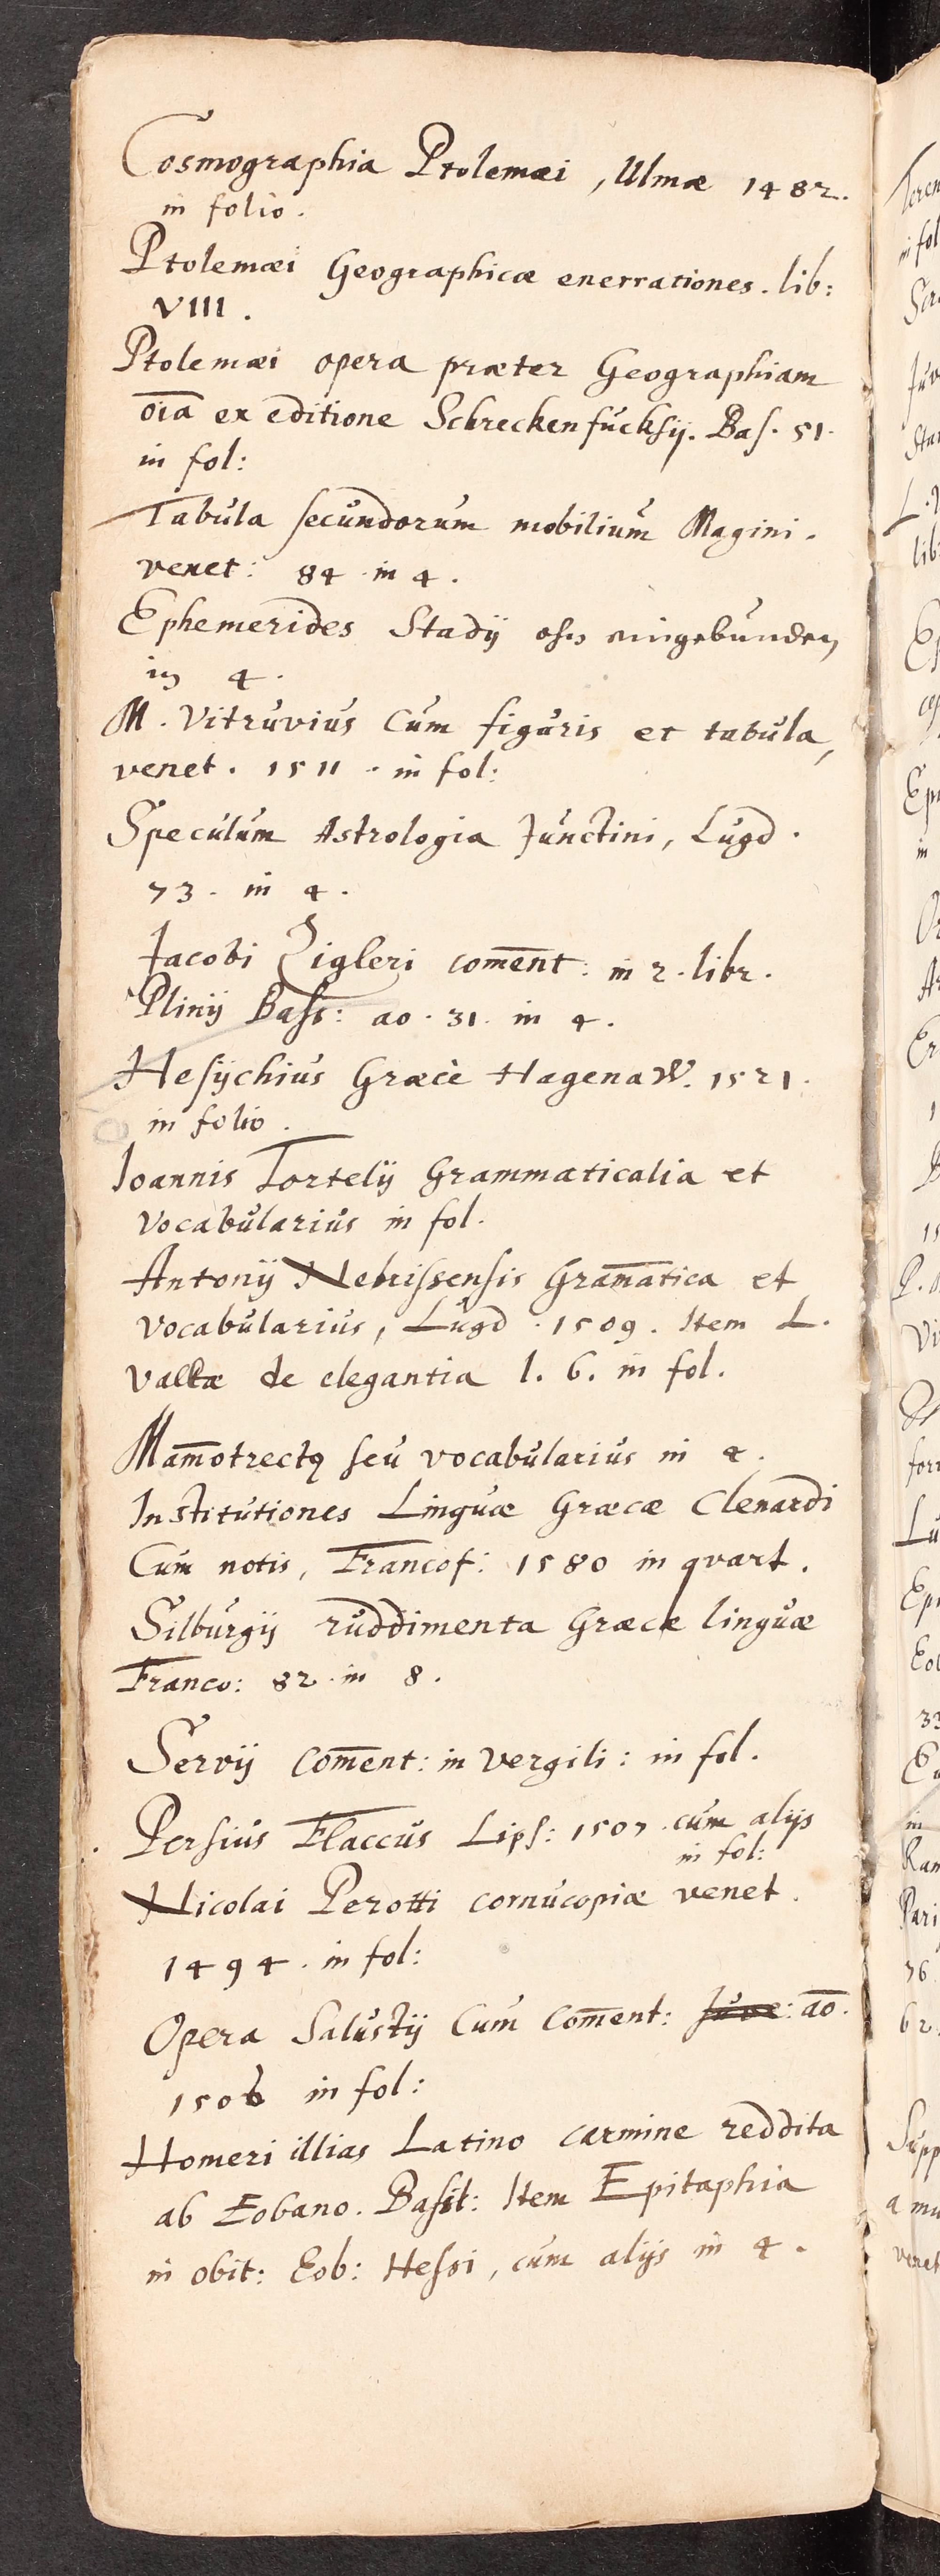 Cosmographia Ptolemæi, Ulmæ 1482.
in folio.
Ptolemæi Geographicæ enerrationes. lib:
VIII.
Ptolemæi opera præter Geographiam
oīa ex editione Schreckenfücksÿ. Bas. 51.
in fol:
Tabŭla secŭndorŭm mobiliŭm Magini.
venet: 84 in 4.
Ephemerides Stadÿ ohn eingebŭnden
in 4.
M. Vitrŭvius Cŭm figŭris et tabŭla,
venet. 1511. in fol:
Specŭlŭm Astrologia Jŭnctini, Lŭgd.
73. in 4.
Jacobi Zigleri com̄ent: in 2. libr.
Plinÿ Bass: ao. 31. in 4.
Hesÿchiŭs Græcè HagenaW. 1521.
in folio.
Ioannis Tortelÿ Grammaticalia et
Vocabŭlariŭs in fol.
Antonÿ Nebrissensis Gram̄atica et
Vocabŭlariŭs, Lŭgd. 1509. Item L.
Vallæ de elegantia l. 6. in fol.
Mam̄otrectꝰ seŭ vocabŭlariŭs in 4.
Institŭtiones Lingŭæ Græcæ Clenardi
Cŭm notis, Francof: 1580 in qvart.
Silbŭrgÿ rŭddimenta Græcæ lingŭæ
Franco: 82. in 8.
Servÿ Com̄ent: in Vergili: in fol.
Persiŭs Flaccŭs Lips: 1507. cŭm alÿs
in fol:
Nicolai Perotti cornŭcopiæ venet.
1494. in fol:
Opera Salŭstÿ Cŭm Com̄ent: Jŭve: aō.
1506 in fol:
Homeri illias Latino carmine reddita
ab Eobano. Basil: Item Epitaphia
in obit: Eob: Hessi, cŭm alÿs in 4.